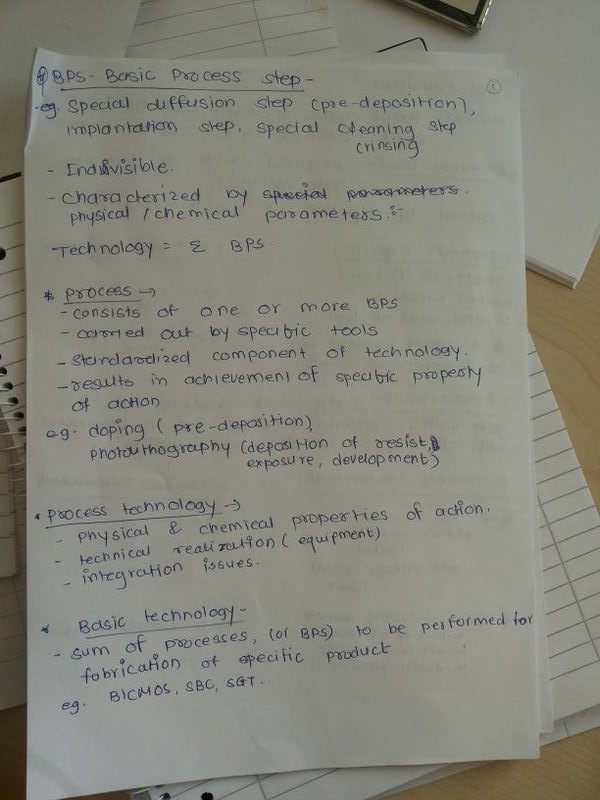 BPS - Basic Process step -
①
- eg. Special diffusion step (pre-deposition),
implantation step, special cleaning step
(rinsing
- Indivisible.
- Characterized by special parameters.
physical / chemical parameters :-
Technology = Σ BPS.
* Process →
- consists of one or more BPS
- carried out by specific tools
- standardized component of technology.
- results in achievement of specific property
of action
eg. doping (pre-deposition),
photolithography (deposition of resist,
exposure, development)
* Process technology →
- physical & chemical properties of action.
- technical realization (equipment)
- integration issues.
* Basic technology -
- sum of processes, (or BPS) to be performed for
fabrication of specific product
eg. BICMOS, SBC, SGT..